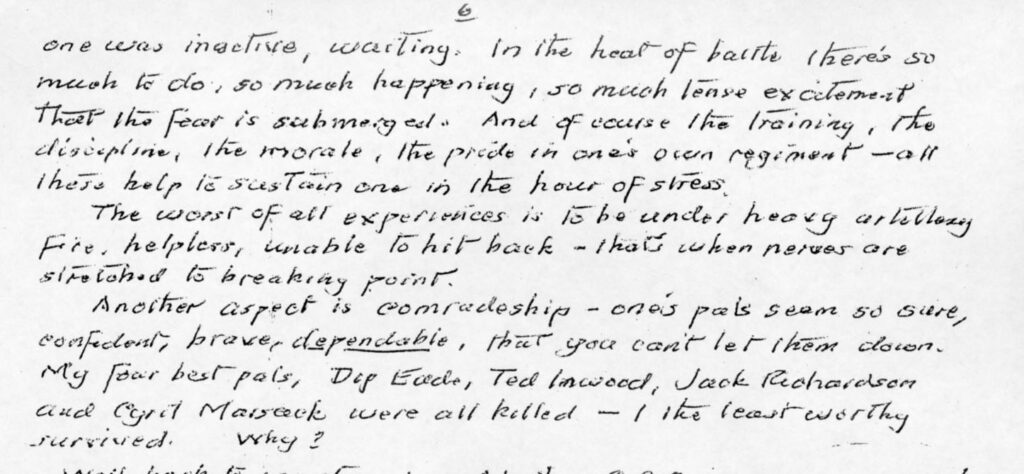 6
one was inactive, waiting. In the heat of battle there's so
much to do, so much happening, so much tense excitement
that the fear is submerged. And of course the training, the
discipline, the morale, the pride in one's own regiment – all
these help to sustain one in the hour of stress.
The worst of all experiences is to be under heavy artillery
fire, helpless, unable to hit back – that's when nerves are
stretched to breaking point.
Another aspect is comradeship – one's pals seem so sure,
confident, brave, dependable, that you can't let them down.
My four best pals, Dip Eade, Ted Inwood, Jack Richardson
and Cyril Marsack were all killed – I the least worthy
survived. Why?
Well back to